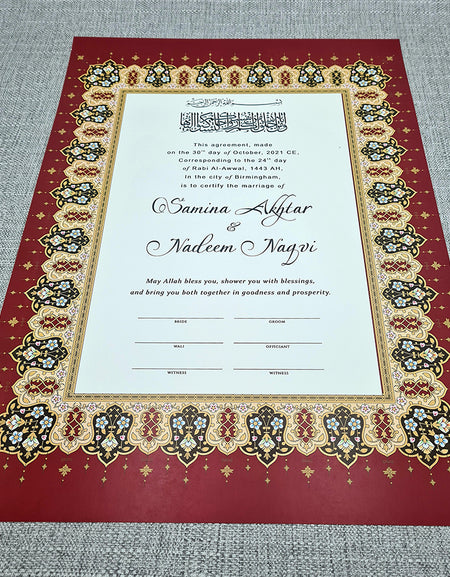 بسم الله الرحمن الرحيم
This agreement, made
on the 30th day of October, 2021 CE,
Corresponding to the 24th day
of Rabi Al-Awwal, 1443 AH,
In the city of Birmingham,
is to certify the marriage of
Samina Akhtar
&
Nadeem Naqvi
May Allah bless you, shower you with blessings,
and bring you both together in goodness and prosperity.
BRIDE GROOM
WALI OFFICIANT
WITNESS WITNESS